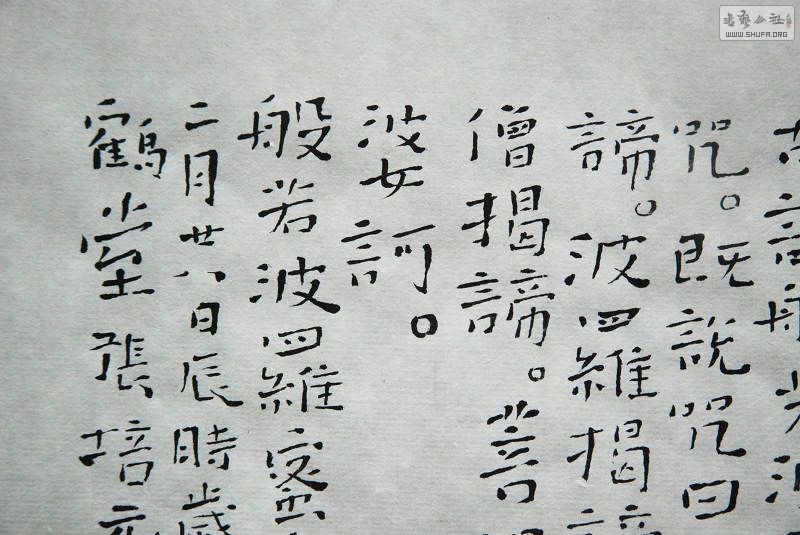 故說般若波
咒。既說咒曰
諦。波羅揭諦
僧揭諦。菩
婆訶。
般若波羅蜜
二月廿八日辰時歲
鶴堂張培元
書藝公社
WWW.SHUFA.ORG